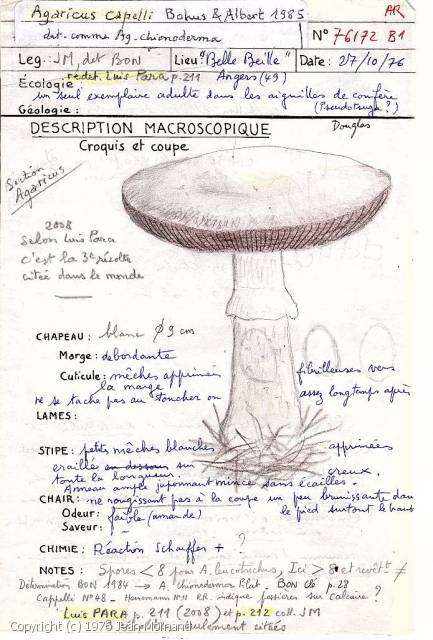 Agaricus capelli Bohus & Albert 1985
AR
det. comme Ag. chionoderma
N° 76172 B1
Leg: JM, det BON
Lieu "Belle Beille"
Date: 27/10/76
redet. Luis Para p.211
Angers (49)
Écologie:
un seul exemplaire adulte dans les aiguilles de conifère
(Pseudotsuga?)
Géologie:
Douglas
DESCRIPTION MACROSCOPIQUE
Croquis et coupe
Section
Agaricus
2008
Selon Luis Para
c'est la 3e récolte
citée dans le monde
CHAPEAU: blanc Ø 9 cm
Marge: debordante
Cuticule: mêches apprimées fibrilleuses vers
la marge
ne se tache pas au toucher ou assez longtemps après
LAMES:
STIPE: petits mêches blanches apprimées
eraillé en dessous sur
toute la longueur. creux.
Anneau ample juponnant mince sans écailles.
CHAIR: ne rougissant pas à la coupe un peu brunissante dans
le pied surtout le haut
Odeur: faible (amande)
Saveur:
CHIMIE: Réaction Schaeffer + ?
NOTES: Spores < 8 pour A. leucotrichus, Ici > 8 et revêt ≠
Détermination BON 1984 → A. chionoderma Pilat. BON clé p.28
Cappelli N°48 - RR. indique calcaire?
Luis PARA p. 211 (2008) et p. 212 coll. JM
seulement citées
Copyright (c) 1976 Jean Mornand